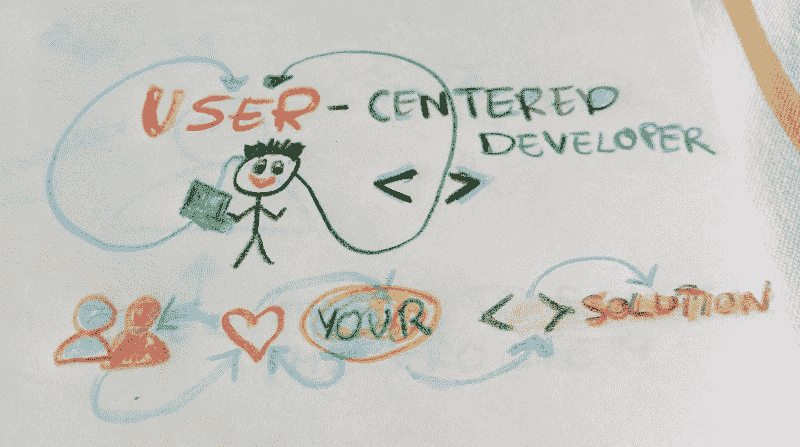 USER-CENTERED
DEVELOPER
< >
YOUR < > SOLUTION